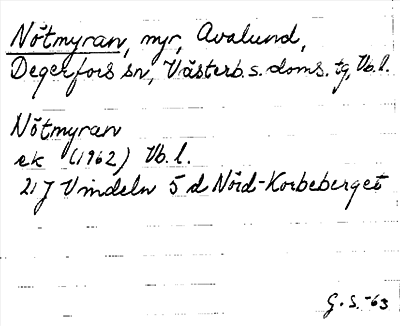 Nötmyran, myr, Avalund,
Degerfors sn, Västerb. s. doms. tg, Vb. l.
Nötmyran
ek (1962) Vb. l.
21 J Vindeln 5 d Nöid-Korbeberget
G. S. -63